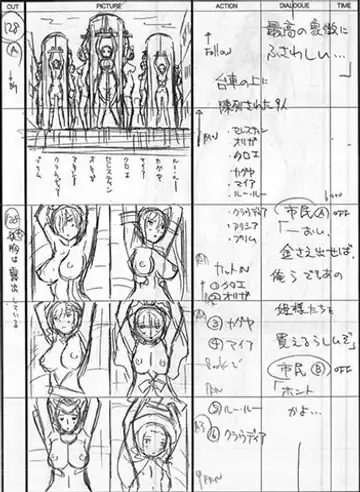 CUT
PICTURE
ACTION
DIALOGUE
TIME
128
A
Follow
台車の上に
陳列された9人
PAN
・セレスティン
・オリガ
・クロエ
・カグヤ
・マイア
・ルー・ルー
・クラウディア
・アリシア
・プリム
最高の象徴に
ふさわしい…」
ルー・ルー
カグヤ
マイア
クロエ
セレスティン
オリガ
アリシア
クラウディア
プリム
128
は露出している
カットIN
①クロエ
②オリガ
③カグヤ
④マイア
PAN
⑤ルー・ルー
⑥クラウディア
PAN
市民A OFF
「おい、
金さえ出せば、
俺らでもあの
姫様たちを
買えるらしいぞ」
市民B OFF
「ホント
かよ…